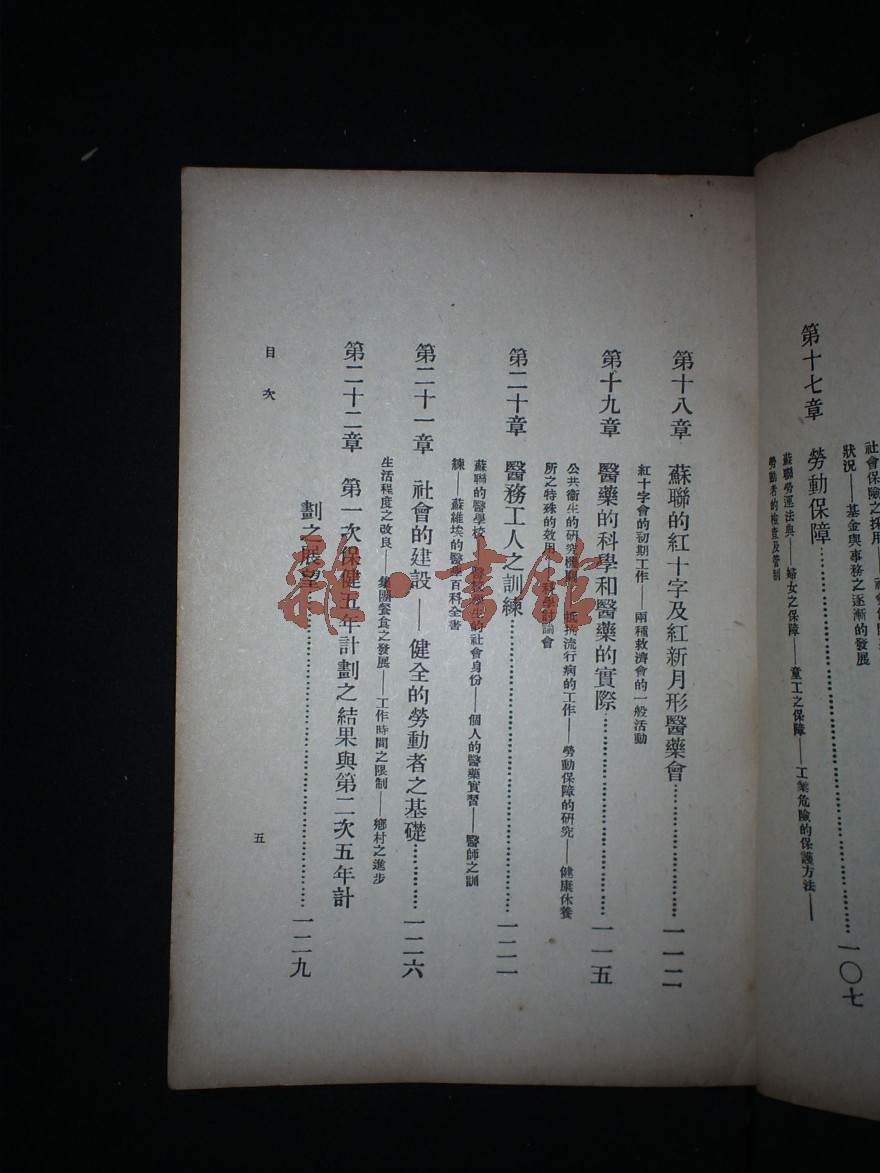 社會保險之採用
狀況——基金與事務之逐漸的發展
第十七章 勞動保障……一〇七
蘇聯勞運法典——婦女之保障——童工之保障——工業危險的保護方法——
勞動者的檢查及管制
第十八章 蘇聯的紅十字及紅新月形醫藥會……一一二
紅十字會的初期工作——兩種救濟會的一般活動
第十九章 醫藥的科學和醫藥的實際……一一五
公共衛生的研究機關——抵抗流行病的工作——勞動保障的研究——健康休養
所之特殊的效用——科學討論會
第二十章 醫務工人之訓練……一二一
蘇聯的醫學校——學生的社會身份——個人的醫藥實習——醫師之訓
練——蘇維埃的醫學百科全書
第二十一章 社會的建設——健全的勞動者之基礎……一二六
生活程度之改良——集團餐食之發展——工作時間之限制——鄉村之進步
第二十二章 第一次保健五年計劃之結果與第二次五年計
劃之展望……一二九
目次
五
雜·書館